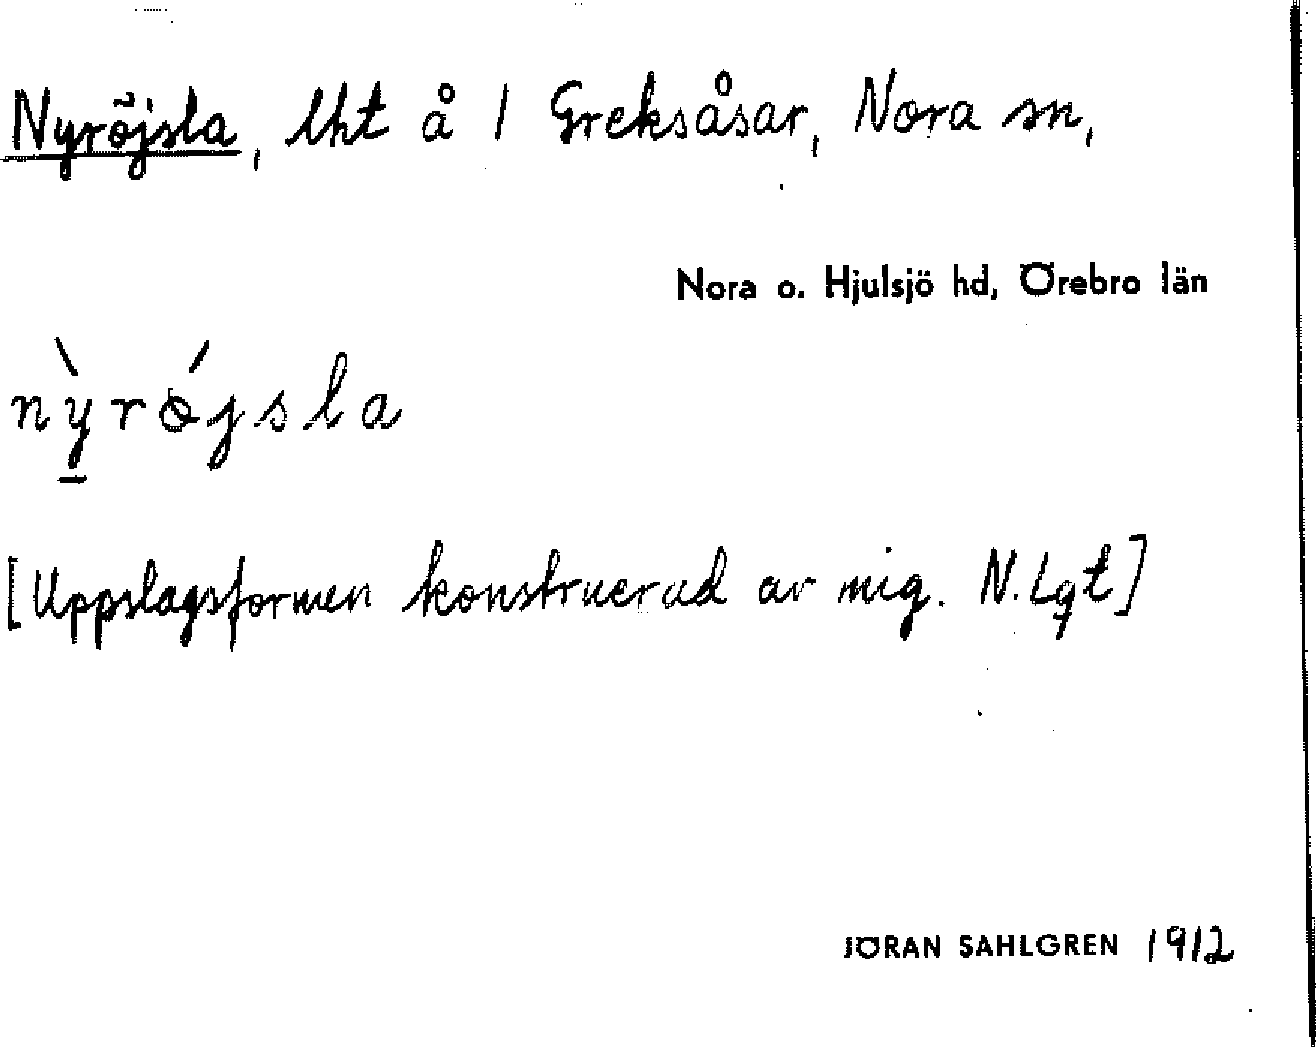 Nyröjsla, lht å 1 Greksåsar, Nora sn,
Nora o. Hjulsjö hd, Örebro län
nỳ̱rǿjsla
[Uppslagsformen konstruerad av mig. N.Lgt]
JÖRAN SAHLGREN 1912